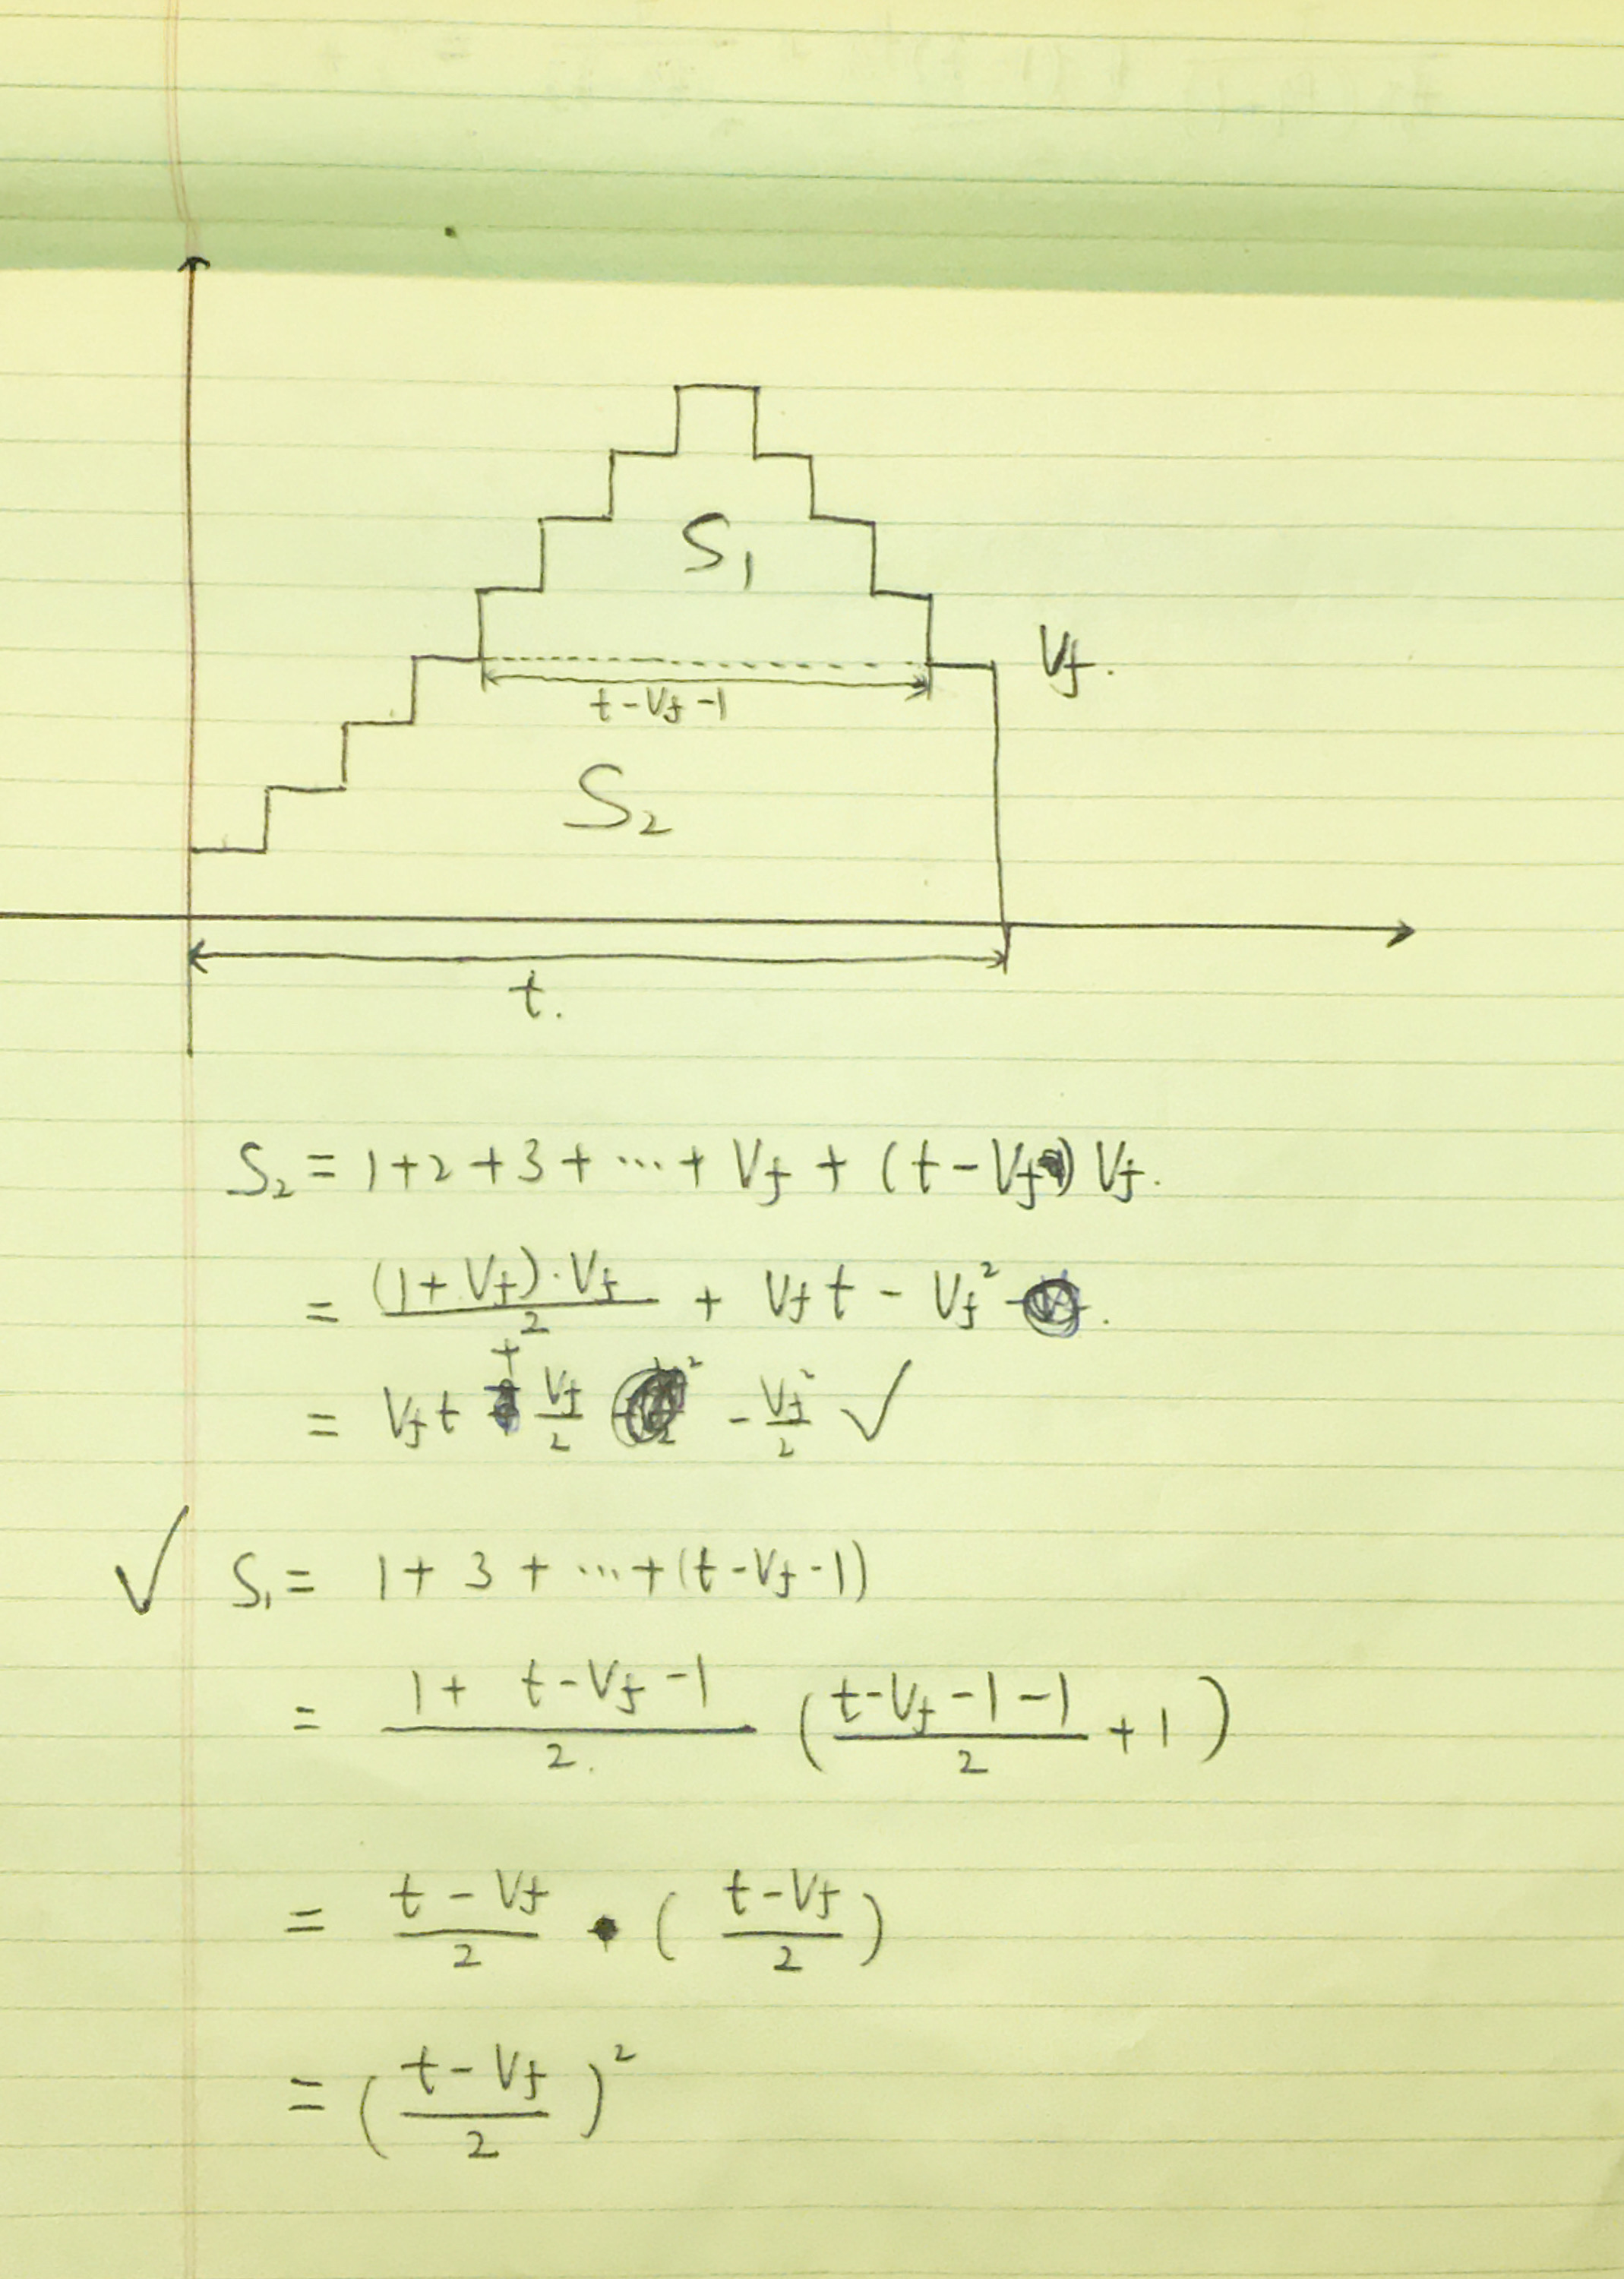 S₁
V_f.
t-V_f-1
S₂
t.
S₂ = 1+2+3+ ... + V_f + (t-V_f) V_f.
= (1+V_f)·V_f / 2 + V_f t - V_f² .
= V_f t + V_f/2 - V_f²/2 ✓
✓ S₁ = 1+3+ ... +(t-V_f-1)
= 1+ t-V_f-1 / 2. ( t-V_f-1-1 / 2 +1 )
= t-V_f / 2 • ( t-V_f / 2 )
= ( t-V_f / 2 )²